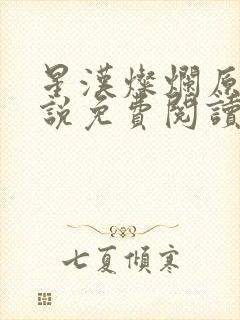 星漢燦爛原
說免費閱讀
七夏傾寒